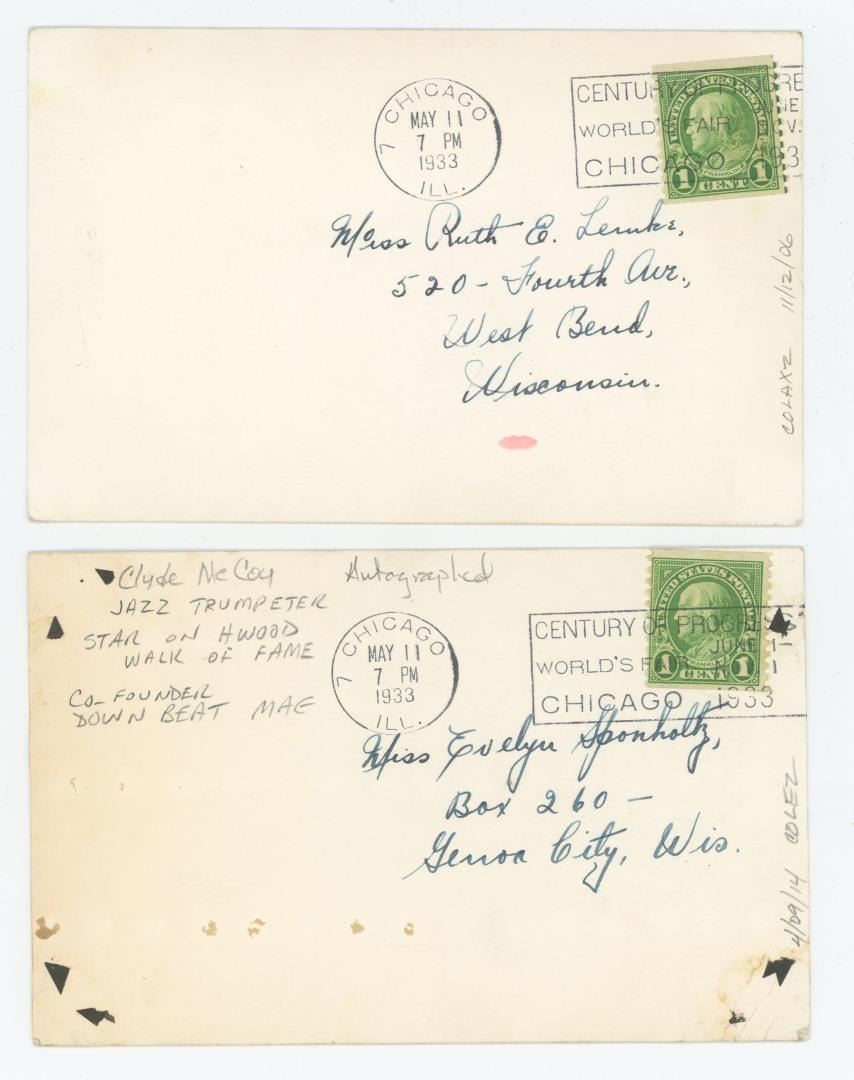 7 CHICAGO
MAY 11
7 PM
1933
ILL.
CENTURY
WORLD'S FAIR
CHICAGO 193
UNITED STATES POSTAGE
FRANKLIN
1 CENT 1
Miss Ruth E. Lemke,
520 - Fourth Ave.,
West Bend,
Wisconsin.
COLAXZ 11/12/06
Clyde McCoy Autographed
JAZZ TRUMPETER
STAR ON HWOOD
WALK OF FAME
CO-FOUNDER
DOWN BEAT MAG
7 CHICAGO
MAY 11
7 PM
1933
ILL.
CENTURY OF PROGRESS
JUNE 1-
WORLD'S FAIR
CHICAGO 1933
UNITED STATES POST
FRANKLIN
1 CENT 1
Miss Evelyn Sponholtz,
Box 260 -
Genoa City, Wis.
4/09/14 COLEZ